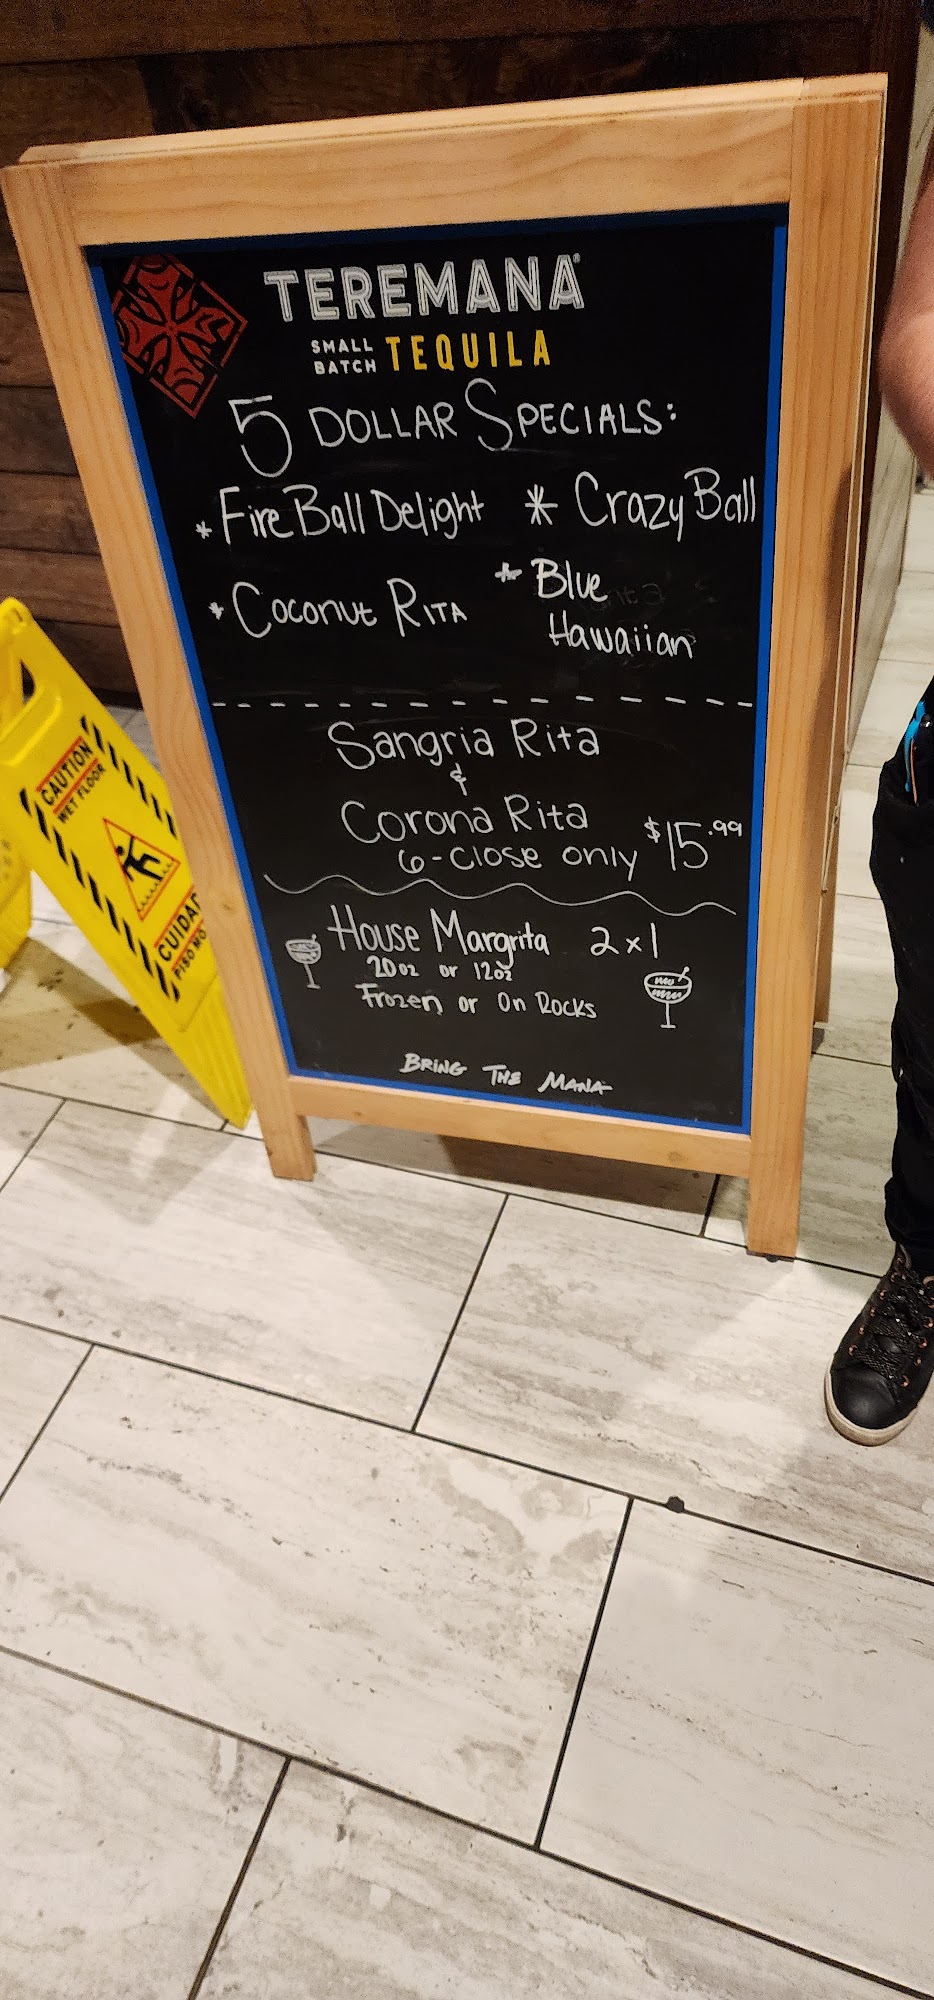 TEREMANA®
SMALL BATCH TEQUILA
5 DOLLAR SPECIALS:
* Fire Ball Delight * Crazy Ball
* Coconut RITA * Blue Hawaiian
Sangria Rita
&
Corona Rita
6-Close only $15.99
House Margrita 2x1
20oz or 12oz
Frozen or On Rocks
BRING THE MANA
CAUTION
WET FLOOR
CUIDAD
PISO MO